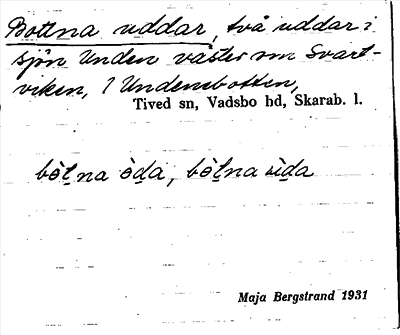 Bottna uddar, två uddar i
sjön Unden väster om Svart-
viken, i Undensbotten,
Tived sn, Vadsbo hd, Skarab. l.
Maja Bergstrand 1931